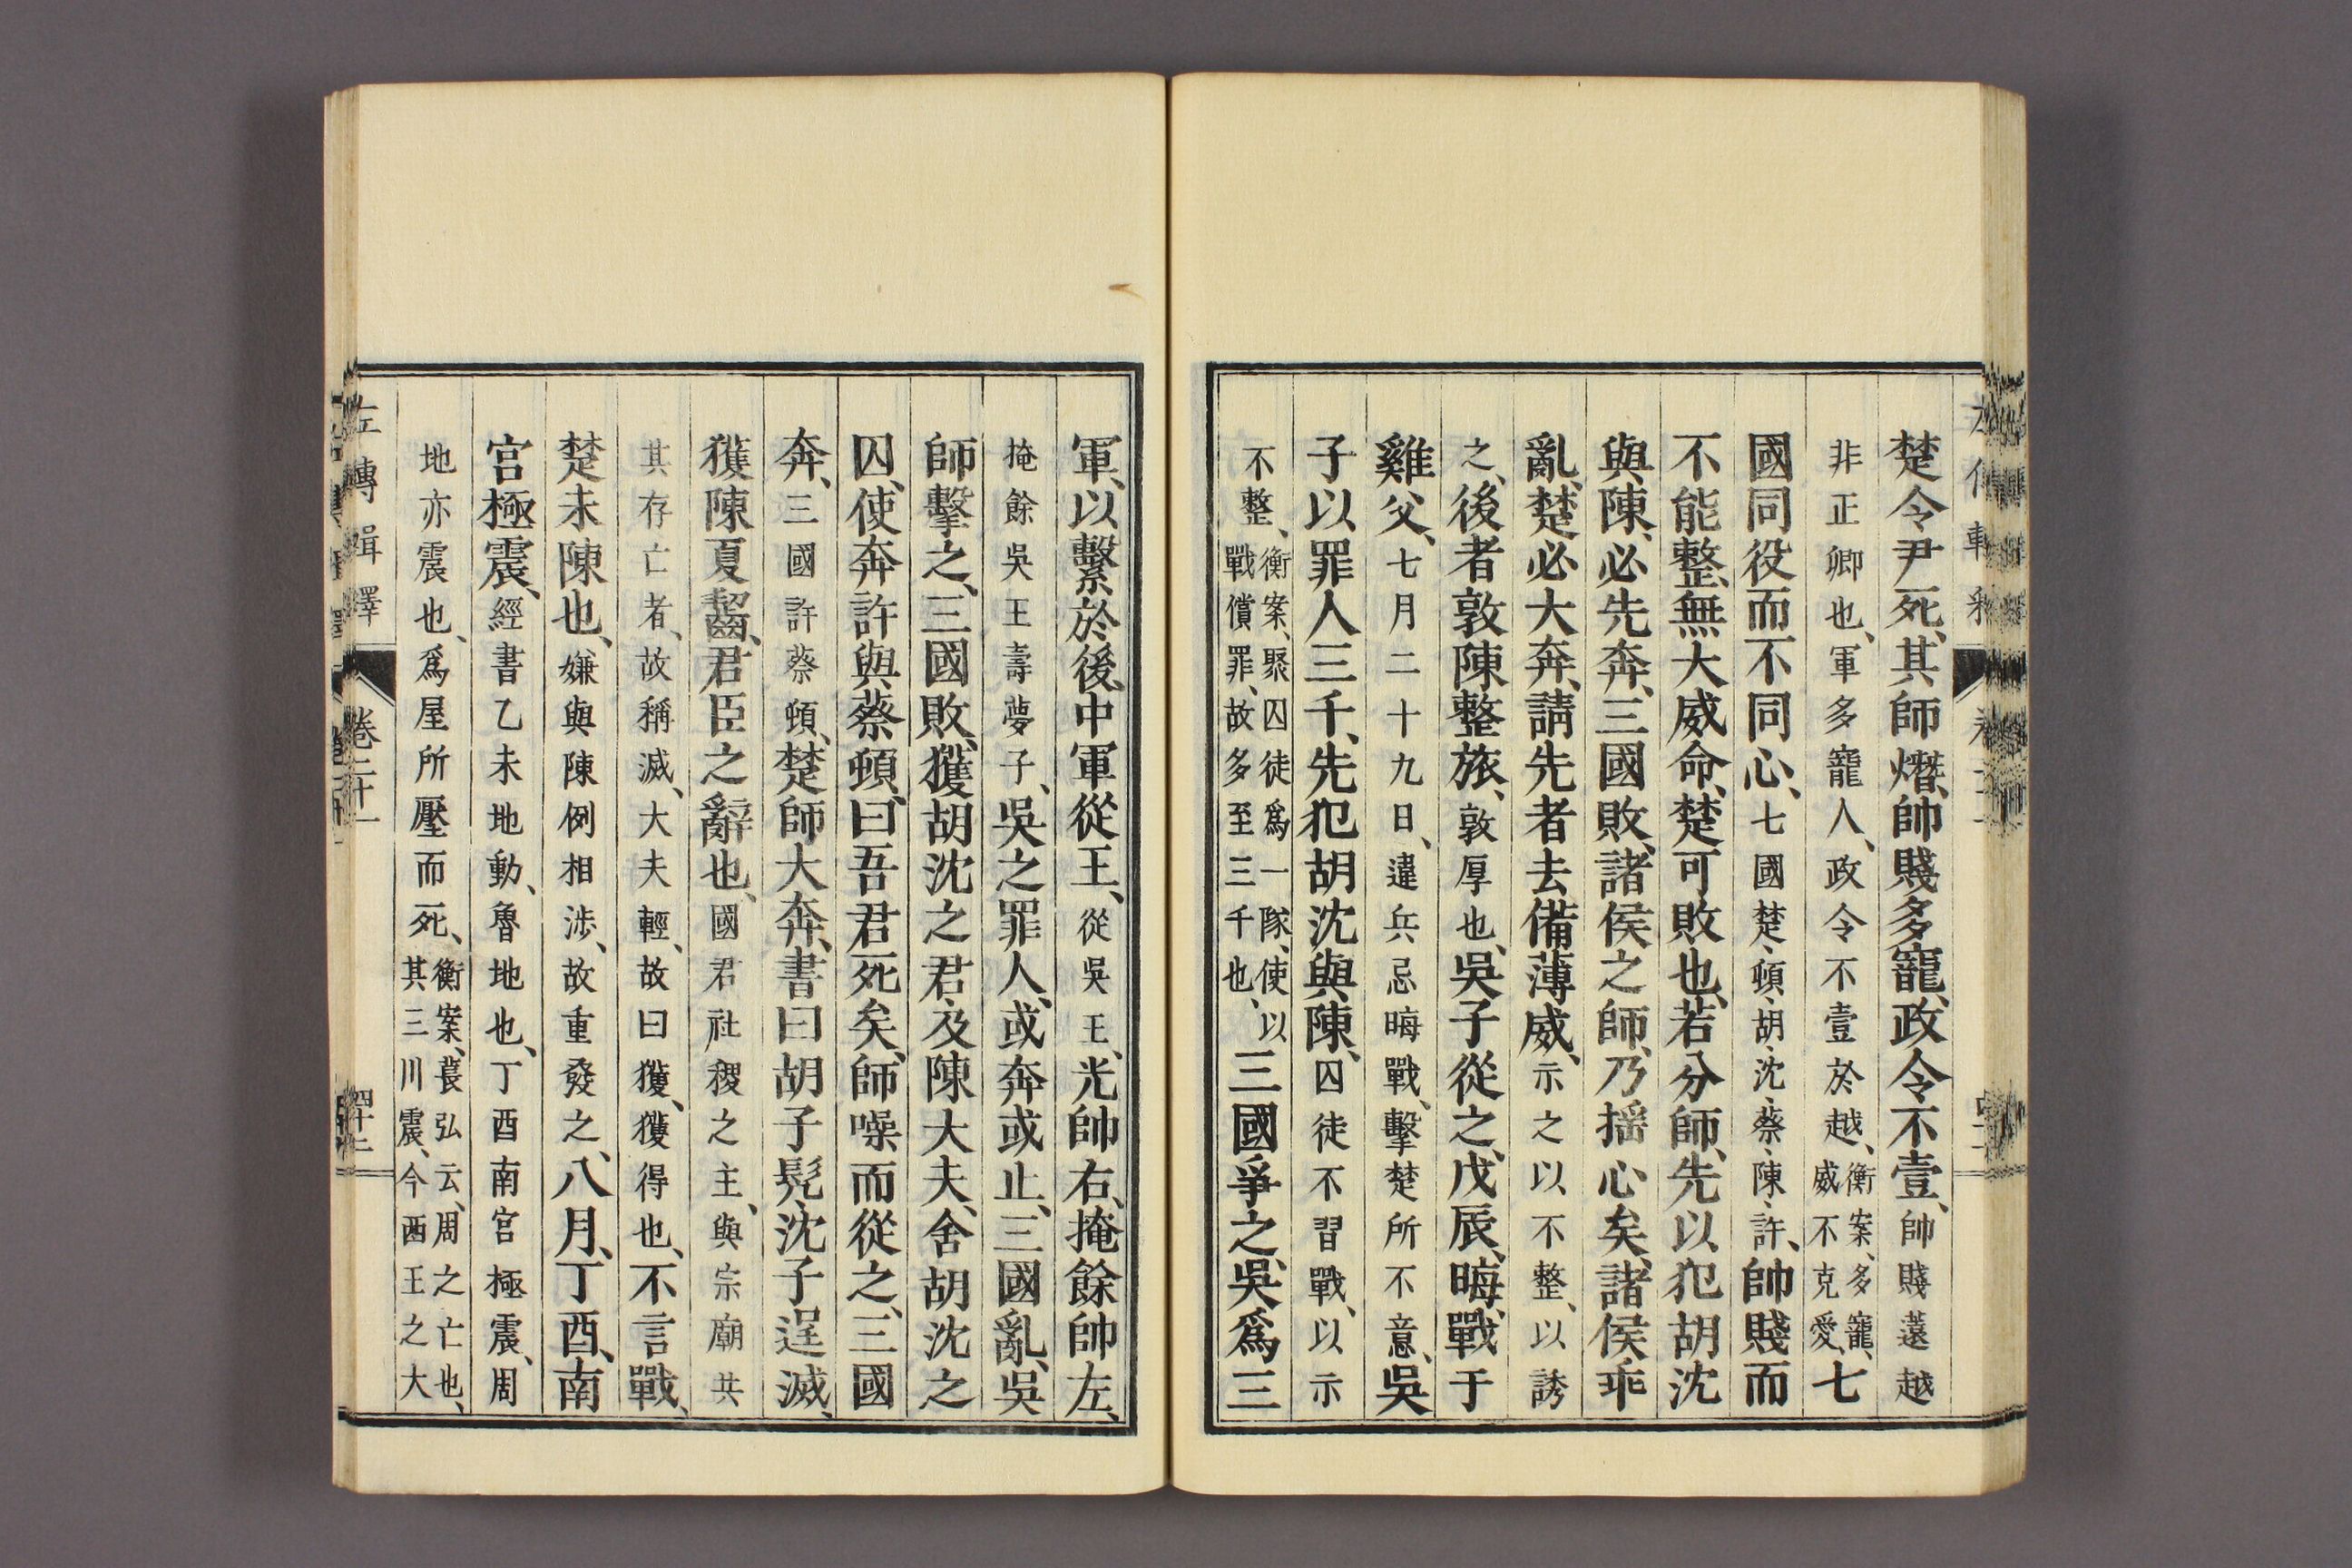 楚令尹死、其師熸、帥賤多寵、政令不壹、帥賤薳越
非正卿也、軍多寵人、政令不壹於越、衡案、多寵、威不克愛、七
國同役而不同心、七國楚、頓、胡、沈、蔡、陳、許、帥賤而
不能整、無大威命、楚可敗也、若分師、先以犯胡沈
與陳、必先奔、三國敗、諸侯之師、乃搖心矣、諸侯乖
亂、楚必大奔、請先者去備薄威、示之以不整、以誘
之、後者敦陳整旅、敦厚也、吳子從之、戊辰、晦、戰于
雞父、七月二十九日、違兵忌晦戰、擊楚所不意、吳
子以罪人三千、先犯胡沈與陳、囚徒不習戰、以示
不整、衡案、聚囚徒爲一隊、使以戰償罪、故多至三千也、三國爭之、吳爲三
軍、以繫於後、中軍從王、從吳王、光帥右、掩餘帥左、
掩餘吳王壽夢子、吳之罪人、或奔或止、三國亂、吳
師擊之、三國敗、獲胡沈之君、及陳大夫、舍胡沈之
囚、使奔許與蔡頓、曰吾君死矣、師噪而從之、三國
奔、三國許蔡頓、楚師大奔、書曰胡子髡、沈子逞滅、
獲陳夏齧、君臣之辭也、國君社稷之主、與宗廟共
其存亡者、故稱滅、大夫輕、故曰獲、獲得也、不言戰、
楚未陳也、嫌與陳例相涉、故重發之、八月、丁酉、南
宮極震、經書乙未地動、魯地也、丁酉南宮極震、周
地亦震也、爲屋所壓而死、衡案、萇弘云、周之亡也、其三川震、今西王之大
左傳輯釋 卷二十一